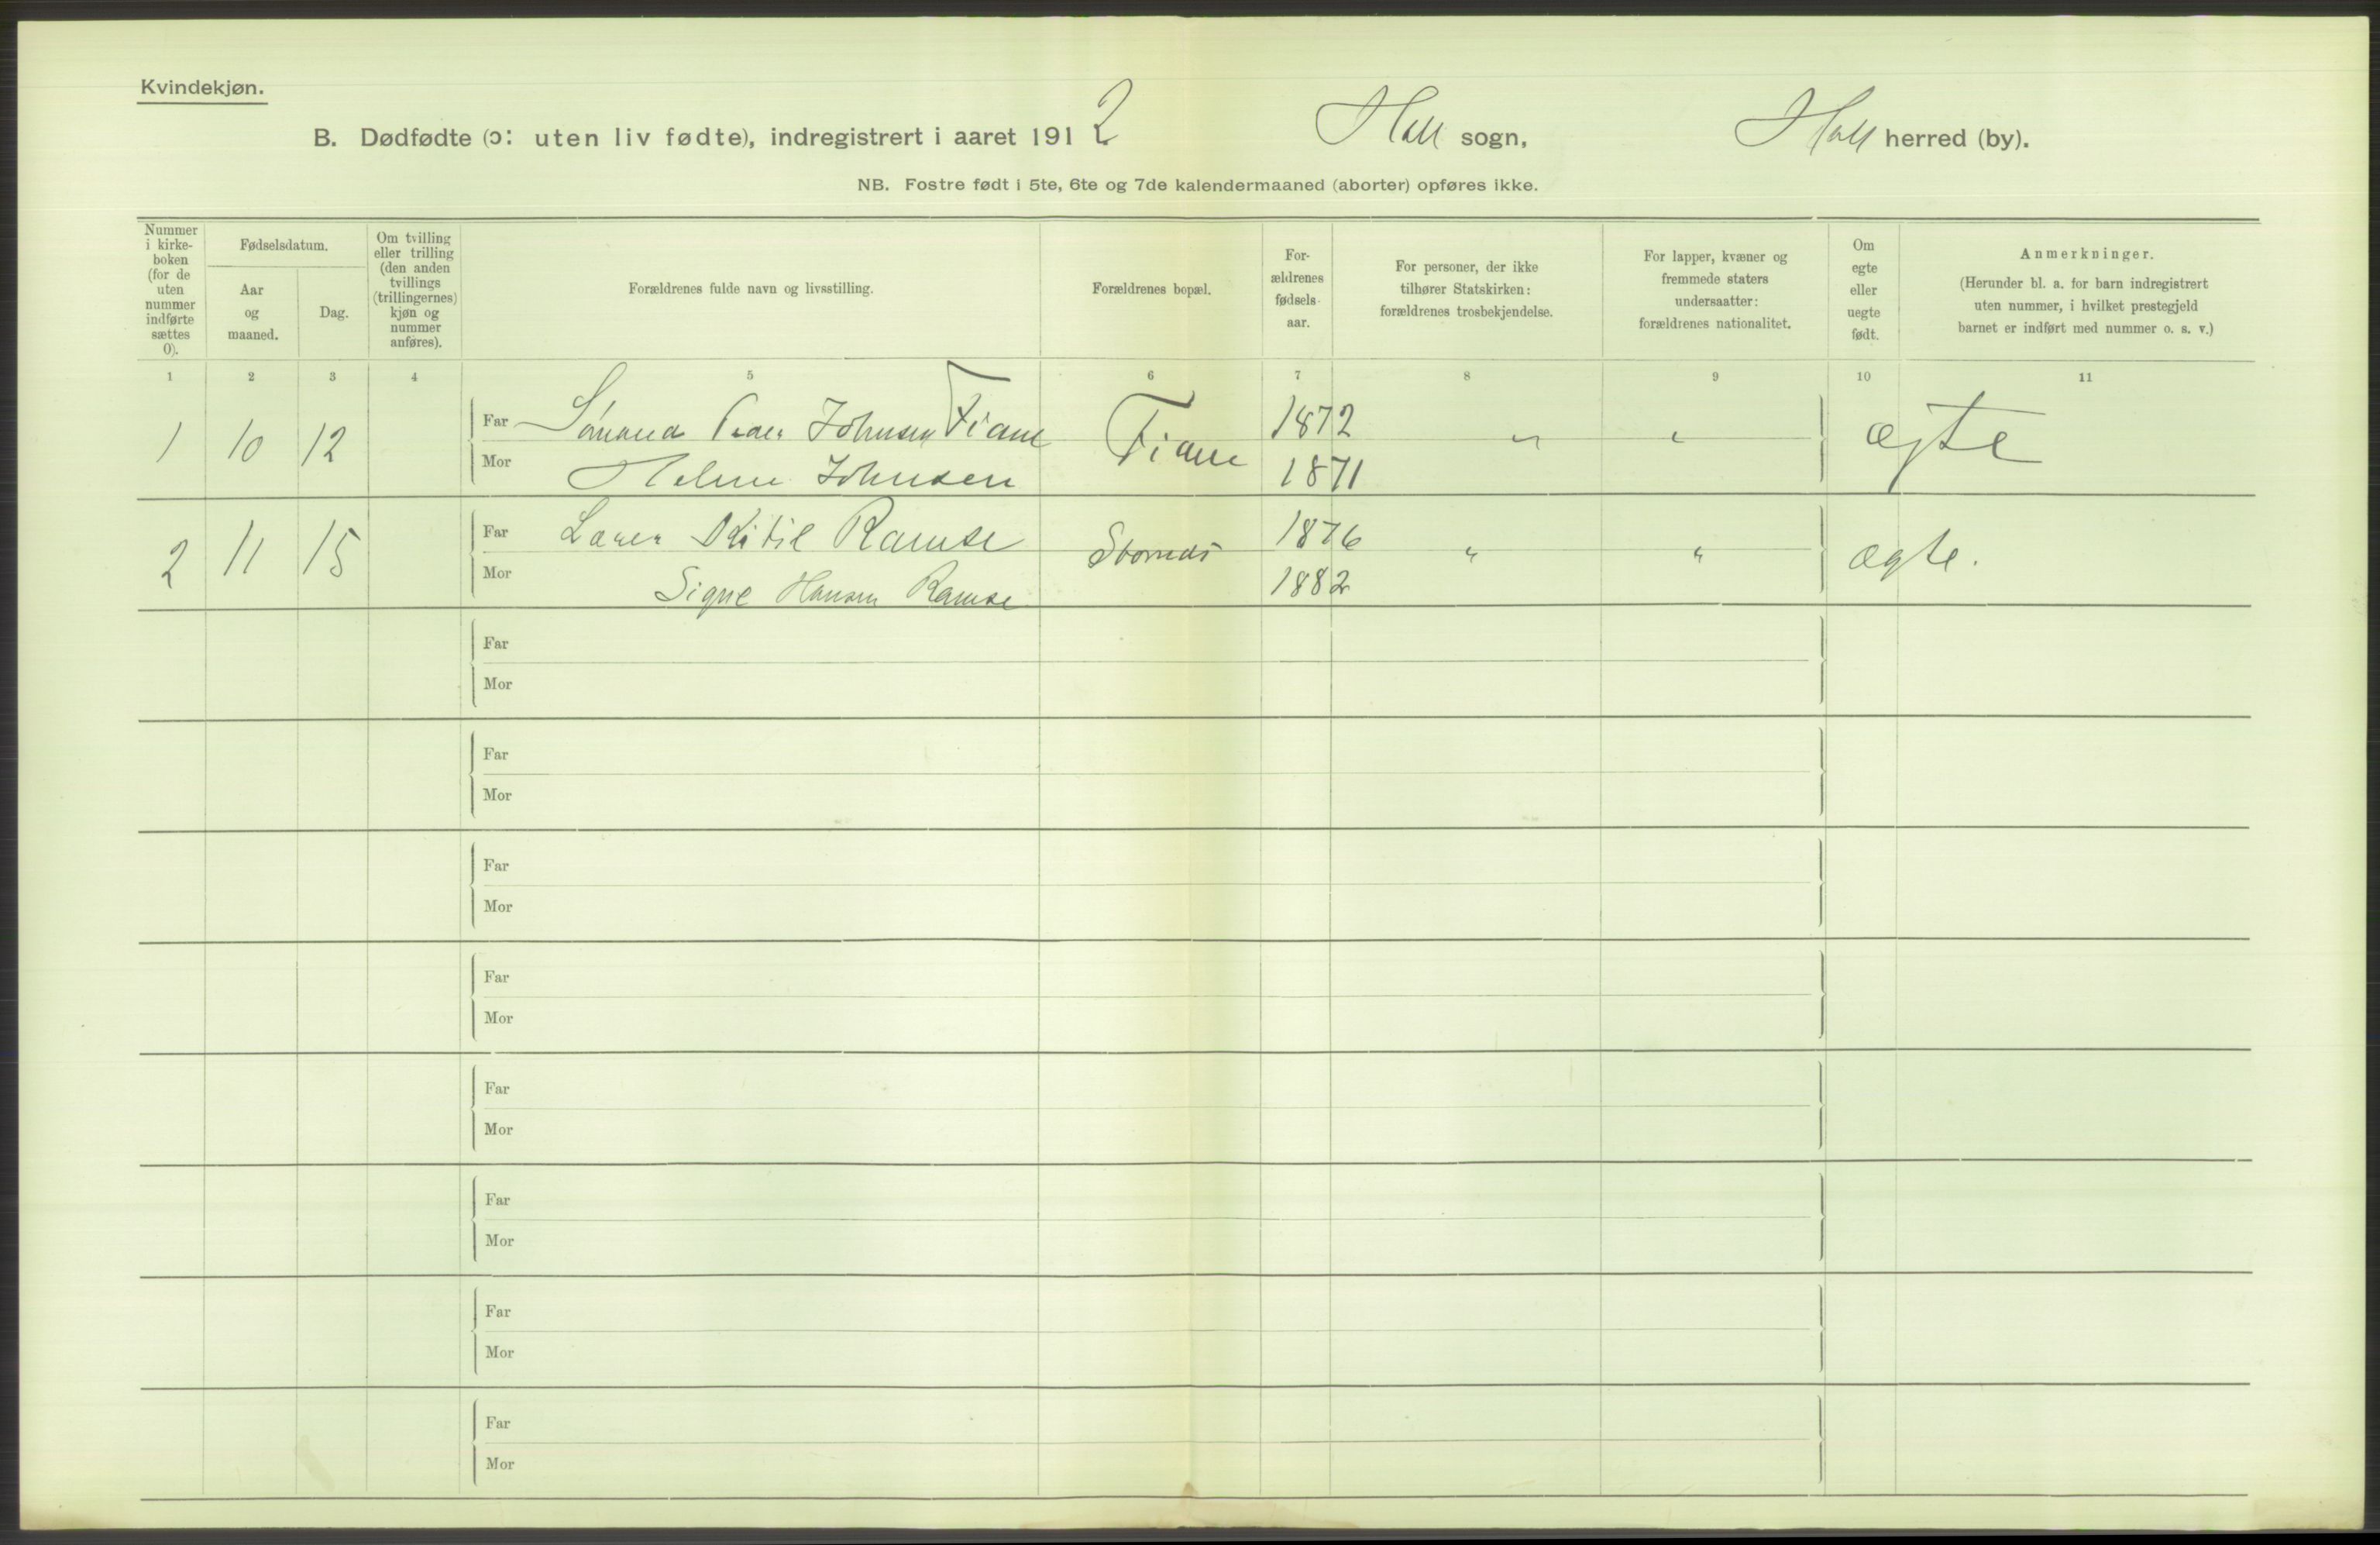 Kvindekjøn.
B. Dødfødte (ɔ: uten liv fødte), indregistrert i aaret 1912 Holt sogn, Holt herred (by).
NB. Fostre født i 5te, 6te og 7de kalendermaaned (aborter) opføres ikke.
Nummer i kirke-boken (for de uten nummer indførte sættes 0).
Fødselsdatum.
Aar og maaned.
Dag.
Om tvilling eller trilling (den anden tvillings (trillingernes) kjøn og nummer anføres).
Forældrenes fulde navn og livsstilling.
Forældrenes bopæl.
For-ældrenes fødsels-aar.
For personer, der ikke tilhører Statskirken: forældrenes trosbekjendelse.
For lapper, kvæner og fremmede staters undersaatter: forældrenes nationalitet.
Om egte eller uegte født.
Anmerkninger.
(Herunder bl. a. for barn indregistrert uten nummer, i hvilket prestegjeld barnet er indført med nummer o. s. v.)
1 2 3 4 5 6 7 8 9 10 11
1 10 12 Far Sømand Peder Johnsen Fiane Fiane 1872 " " ægte
Mor Helene Johnsen 1871
2 11 15 Far Lærer Kitil Ramse 1876 " " ægte.
Mor Signe Hansen Ramse 1882
Far
Mor
Far
Mor
Far
Mor
Far
Mor
Far
Mor
Far
Mor
Far
Mor
Far
Mor